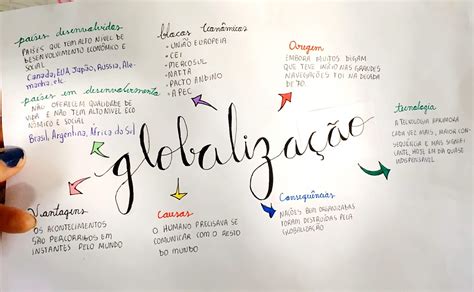 países desenvolvidos
PAÍSES QUE TEM ALTO NIVEL DE
DESENVOLVIMENTO ECONÔMICO E
SOCIAL
Canada, EUA, Japão, Russia, Ale-
manha, etc.
países em desenvolvimento
NÃO OFERECEM QUALIDADE DE
VIDA E NÃO TEM ALTO NIVEL ECO
NÔMICO E SOCIAL
Brasil, Argentina, África do Sul
blocos Econômicos
- UNIÃO EUROPEIA
- CEI
- MERCOSUL
- NAFTA
- PACTO ANDINO
- APEC
Origem
EMBORA MUITOS DIGAM
QUE TEVE INÍCIO NAS GRANDES
NAVEGAÇÕES FOI NA DECADA
DE 70.
tecnologia
A TECNOLOGIA APRIMORA
CADA VEZ MAIS, MAIOR CON-
SEQUÊNCIA E MAIS SIGNIFI
CANTE, HOJE EM DIA QUASE
INDISPENSÁVEL
globalização
Vantagens
OS ACONTECIMENTOS
SÃO PERCORRIDOS EM
INSTANTES PELO MUNDO
Causas
O HUMANO PRECISAVA SE
COMUNICAR COM O RESTO
DO MUNDO
Consequências
NAÇÕES BEM ORGANIZADAS
FORAM DESTRUIDAS PELA
GLOBALIZAÇÃO